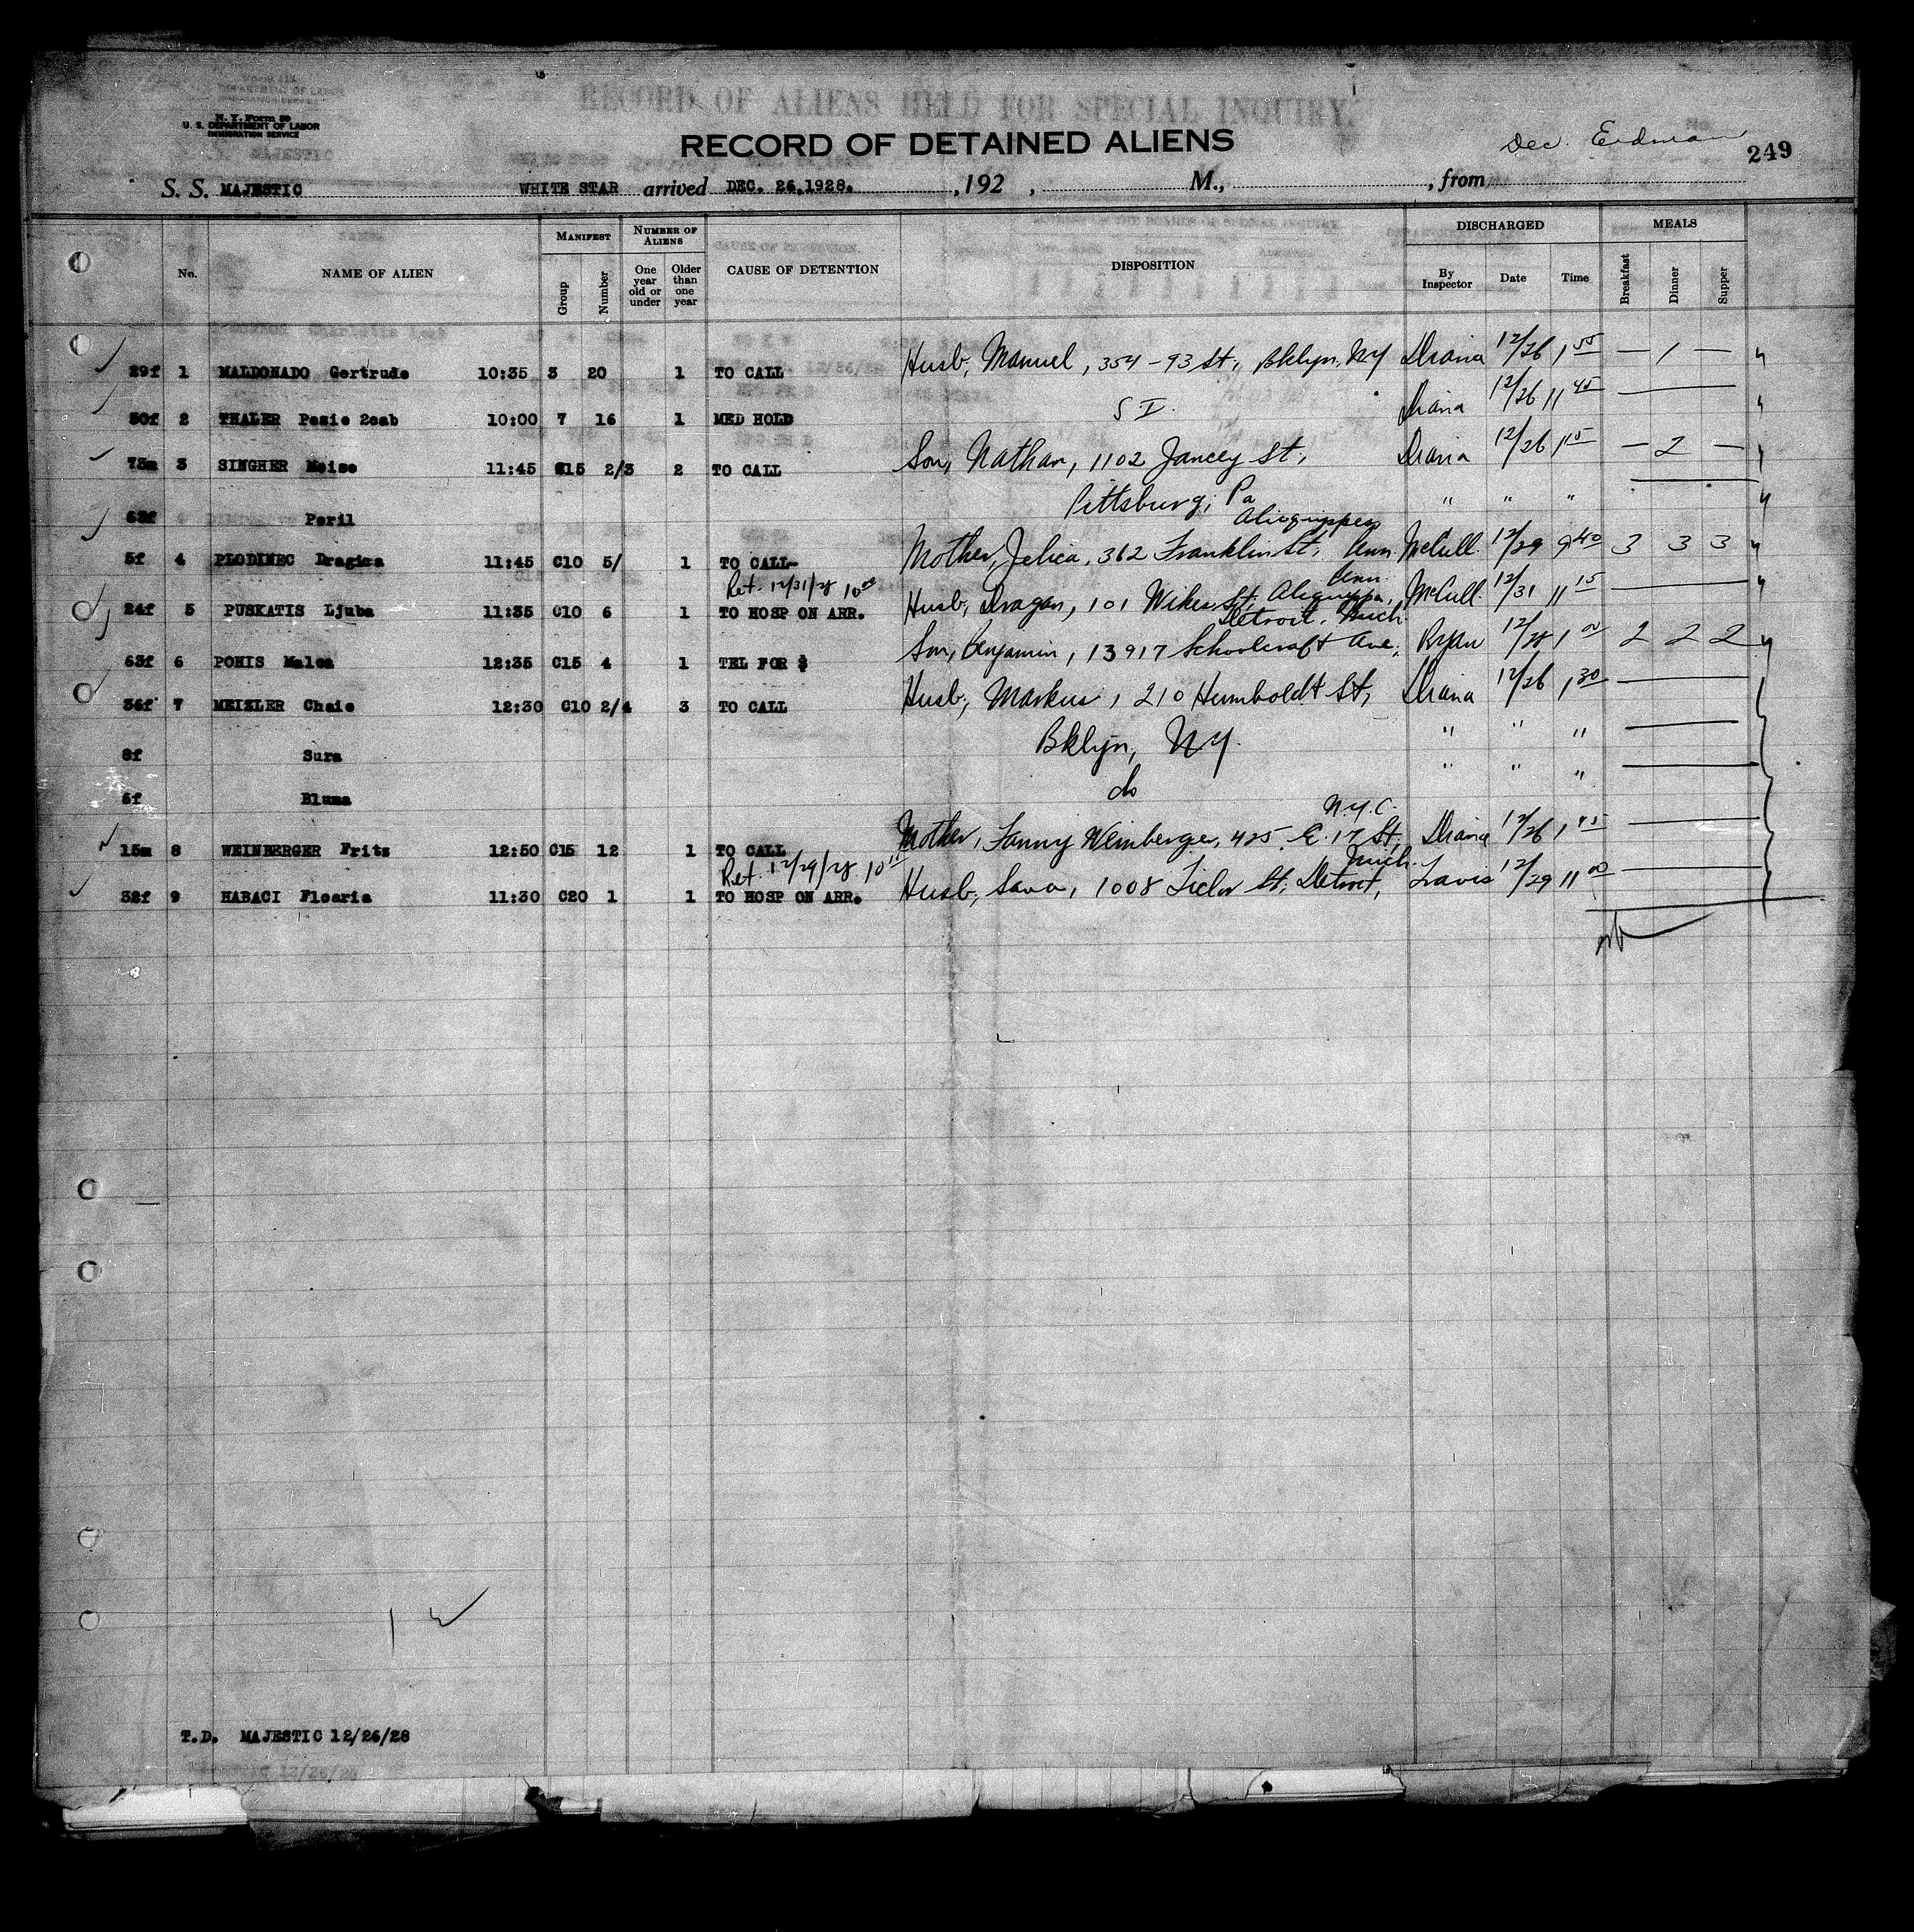 RECORD OF ALIENS HELD FOR SPECIAL INQUIRY.
N. Y. Form 89
U. S. DEPARTMENT OF LABOR
IMMIGRATION SERVICE
RECORD OF DETAINED ALIENS
Dec. Erdman
249
S. S. MAJESTIC WHITE STAR arrived DEC. 26,1928. , 192 , M., , from
No. NAME OF ALIEN MANIFEST Group Number NUMBER OF ALIENS One year old or under Older than one year CAUSE OF DETENTION DISPOSITION DISCHARGED By Inspector Date Time MEALS Breakfast Dinner Supper
29f 1 MALDONADO Gertrude 10:35 3 20 1 TO CALL Husb, Manuel, 354 - 93 St, Bklyn, NY Diana 12/26 1 55 — 1 —
30f 2 THALER Pesie 10:00 7 16 1 MED HOLD S I. Diana 12/26 11 45
73m 3 SINGHER Moise 11:45 C15 2/3 2 TO CALL Son, Nathan, 1102 Jancey St, Diana 12/26 1 15 — 2 —
63f Peril Pittsburg, Pa " " "
5f 4 PLODINEC Dragica 11:45 C10 5/ 1 TO CALL- Mother, Jelica, 362 Franklin St, Aliquippa Penn. McCull. 12/29 9 40 3 3 3
Ret. 12/31/28 10 00
24f 5 PUSKATIS Ljuba 11:35 C10 6 1 TO HOSP ON ARR. Husb, Dragan, 101 St, Aliquippa, Penn. McCull. 12/31 11 15
63f 6 POHIS Malea 12:35 C15 4 1 TEL FOR $ Son, Benjamin, 13917 Schoolcraft Ave, Detroit, Mich. Ryan 12/28 1 00 2 2 2
36f 7 MEIZLER Chaie 12:30 C10 2/4 3 TO CALL Husb, Markus, 210 Humboldt St, Diana 12/26 1 30
8f Sura Bklyn, NY. " " "
6f Bluma do " " "
15m 8 WEINBERGER Fritz 12:50 C15 12 1 TO CALL Mother, Fanny Weinberger, 425 E. 17 St, N.Y.C. Diana 12/26 1 45
Ret. 12/29/28 10
32f 9 HABACI Floaria 11:30 C20 1 1 TO HOSP ON ARR. Husb, Sava, 1008 St, Detroit, Mich. Travis 12/29 11 00
T.D. MAJESTIC 12/26/28